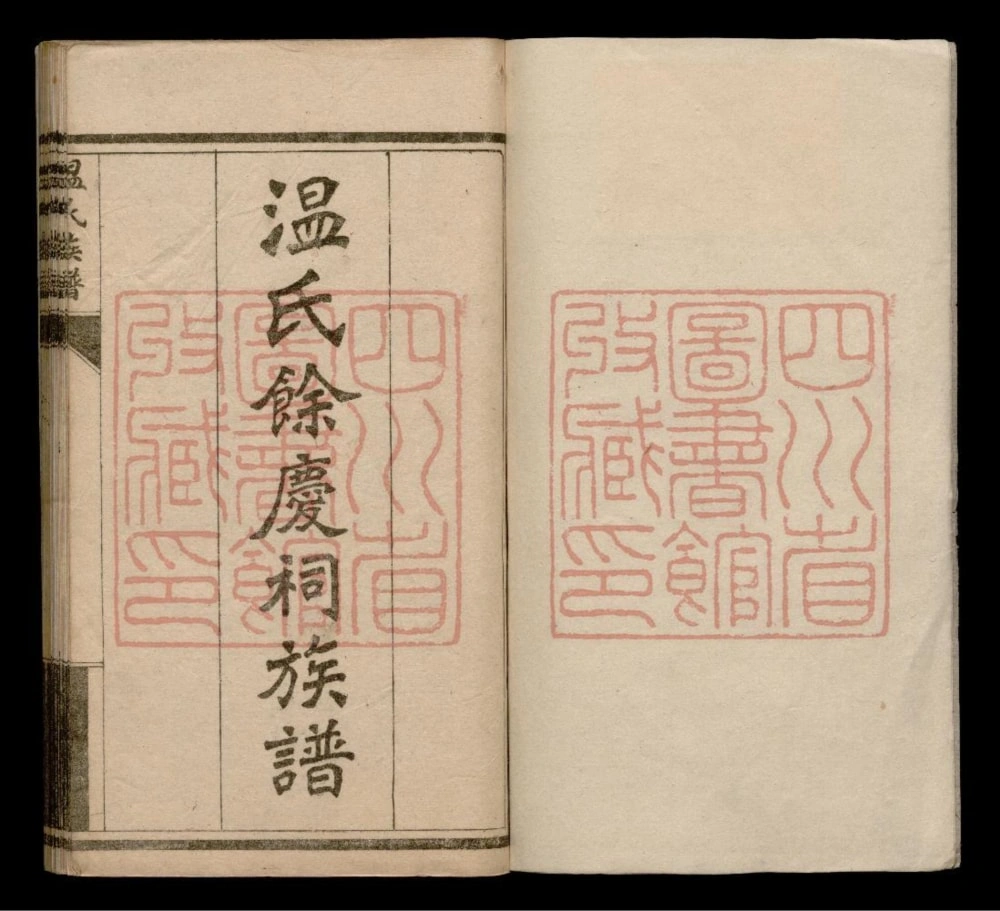 四川省
圖書館
收藏印
温氏餘慶祠族譜
四川省
圖書館
收藏印
温氏族譜